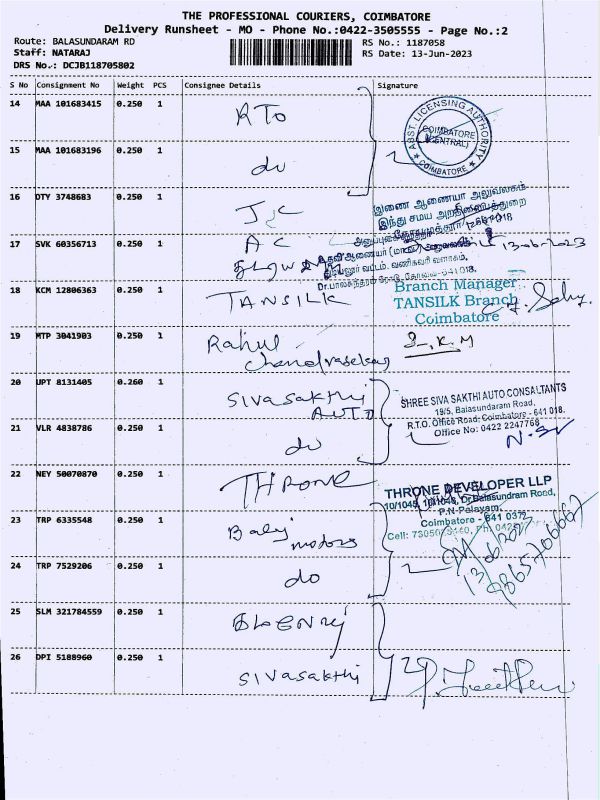 THE PROFESSIONAL COURIERS, COIMBATORE
Delivery Runsheet - MO - Phone No.:0422-3505555 - Page No.:2
Route: BALASUNDARAM RD
RS No.: 1187058
Staff: NATARAJ
RS Date: 13-Jun-2023
DRS No.: DCJB118705802
S No Consignment No Weight PCS Consignee Details Signature
14 MAA 101683415 0.250 1 RTO
ABST. LICENSING AUTHORITY
COIMBATORE
(CENTRAL)
COIMBATORE
15 MAA 101683196 0.250 1 do
16 DTY 3748683 0.250 1 J.C
இணை ஆணையர் அலுவலகம்
இந்து சமய அறநிலையத்துறை
17 SVK 60356713 0.250 1 A C
13-06-2023
18 KCM 12806363 0.250 1 TANSILK
Branch Manager
TANSILK Branch
Coimbatore
19 MTP 3041903 0.250 1 Rahul
Chandrasekar
20 UPT 8131405 0.260 1 Sivasakthi
AUTO
SHREE SIVA SAKTHI AUTO CONSALTANTS
19/5, Balasundaram Road,
R.T.O. Office Road, Coimbatore - 641 018.
Office No: 0422 2247768
21 VLR 4838786 0.250 1 do
22 NEY 50070870 0.250 1 THRONE
THRONE DEVELOPER LLP
10/1045, 10/1046, Dr.Balasundram Road,
P.N Palayam,
Coimbatore - 641 037
23 TRP 6335548 0.250 1 Balaji
motors
24 TRP 7529206 0.250 1 do
25 SLM 321784559 0.250 1
26 DPI 5188960 0.250 1 Sivasakthi